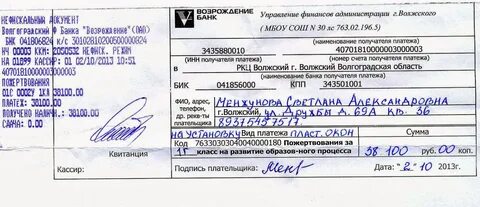 НЕФИСКАЛЬНЫЙ ДОКУМЕНТ
Волгоградский Ф Банка "Возрождение"(ОАО)
БИК 041806824 к/с 30101810200500000824
НЕФИСК. РЕЖИМ
02/10/2013 10:51
40701810000003000003
ПОЖЕРТВОВАНИЯ
ПЛАТЕЖ: 38100.00
ИТОГ: 38100.00
ПОЛУЧЕНО НАЛИЧН: 38100.00
СДАЧА: 0.00
Квитанция
Кассир:
ВОЗРОЖДЕНИЕ
БАНК
Управление финансов администрации г.Волжского
( МБОУ СОШ N 30 лс 763.02.196.5)
3435880010
40701810000003000003
(ИНН получателя платежа)
(номер счета получателя платежа)
в РКЦ Волжский г. Волжский Волгоградская область
(наименование банка получателя платежа)
БИК 041856000 КПП 343501001
ФИО, адрес, телефон, др. рекв-ты плательщика
Менжунова Светлана Александровна
г.Волжский, ул Дружбы д. 69А кв. 36
89375457517
на установку пласт. окон
Вид платежа
Сумма
Код 76330303040040000180 Пожертвования за
1Г класс на развитие образов-ного процесса
38 100 руб. 00 коп.
Кассир:
Подпись плательщика:
Дата "2" 10 2013г.